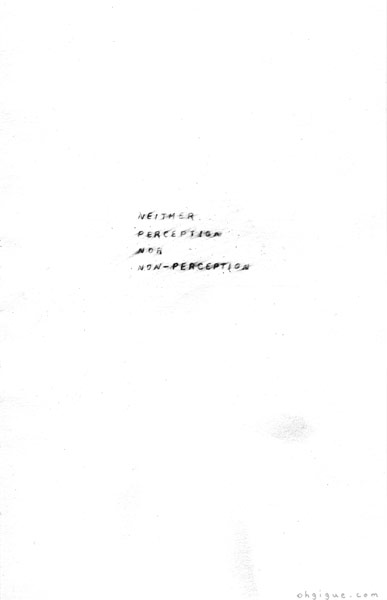 NEITHER
PERCEPTION
NOR
NON-PERCEPTION
ohgigue.com